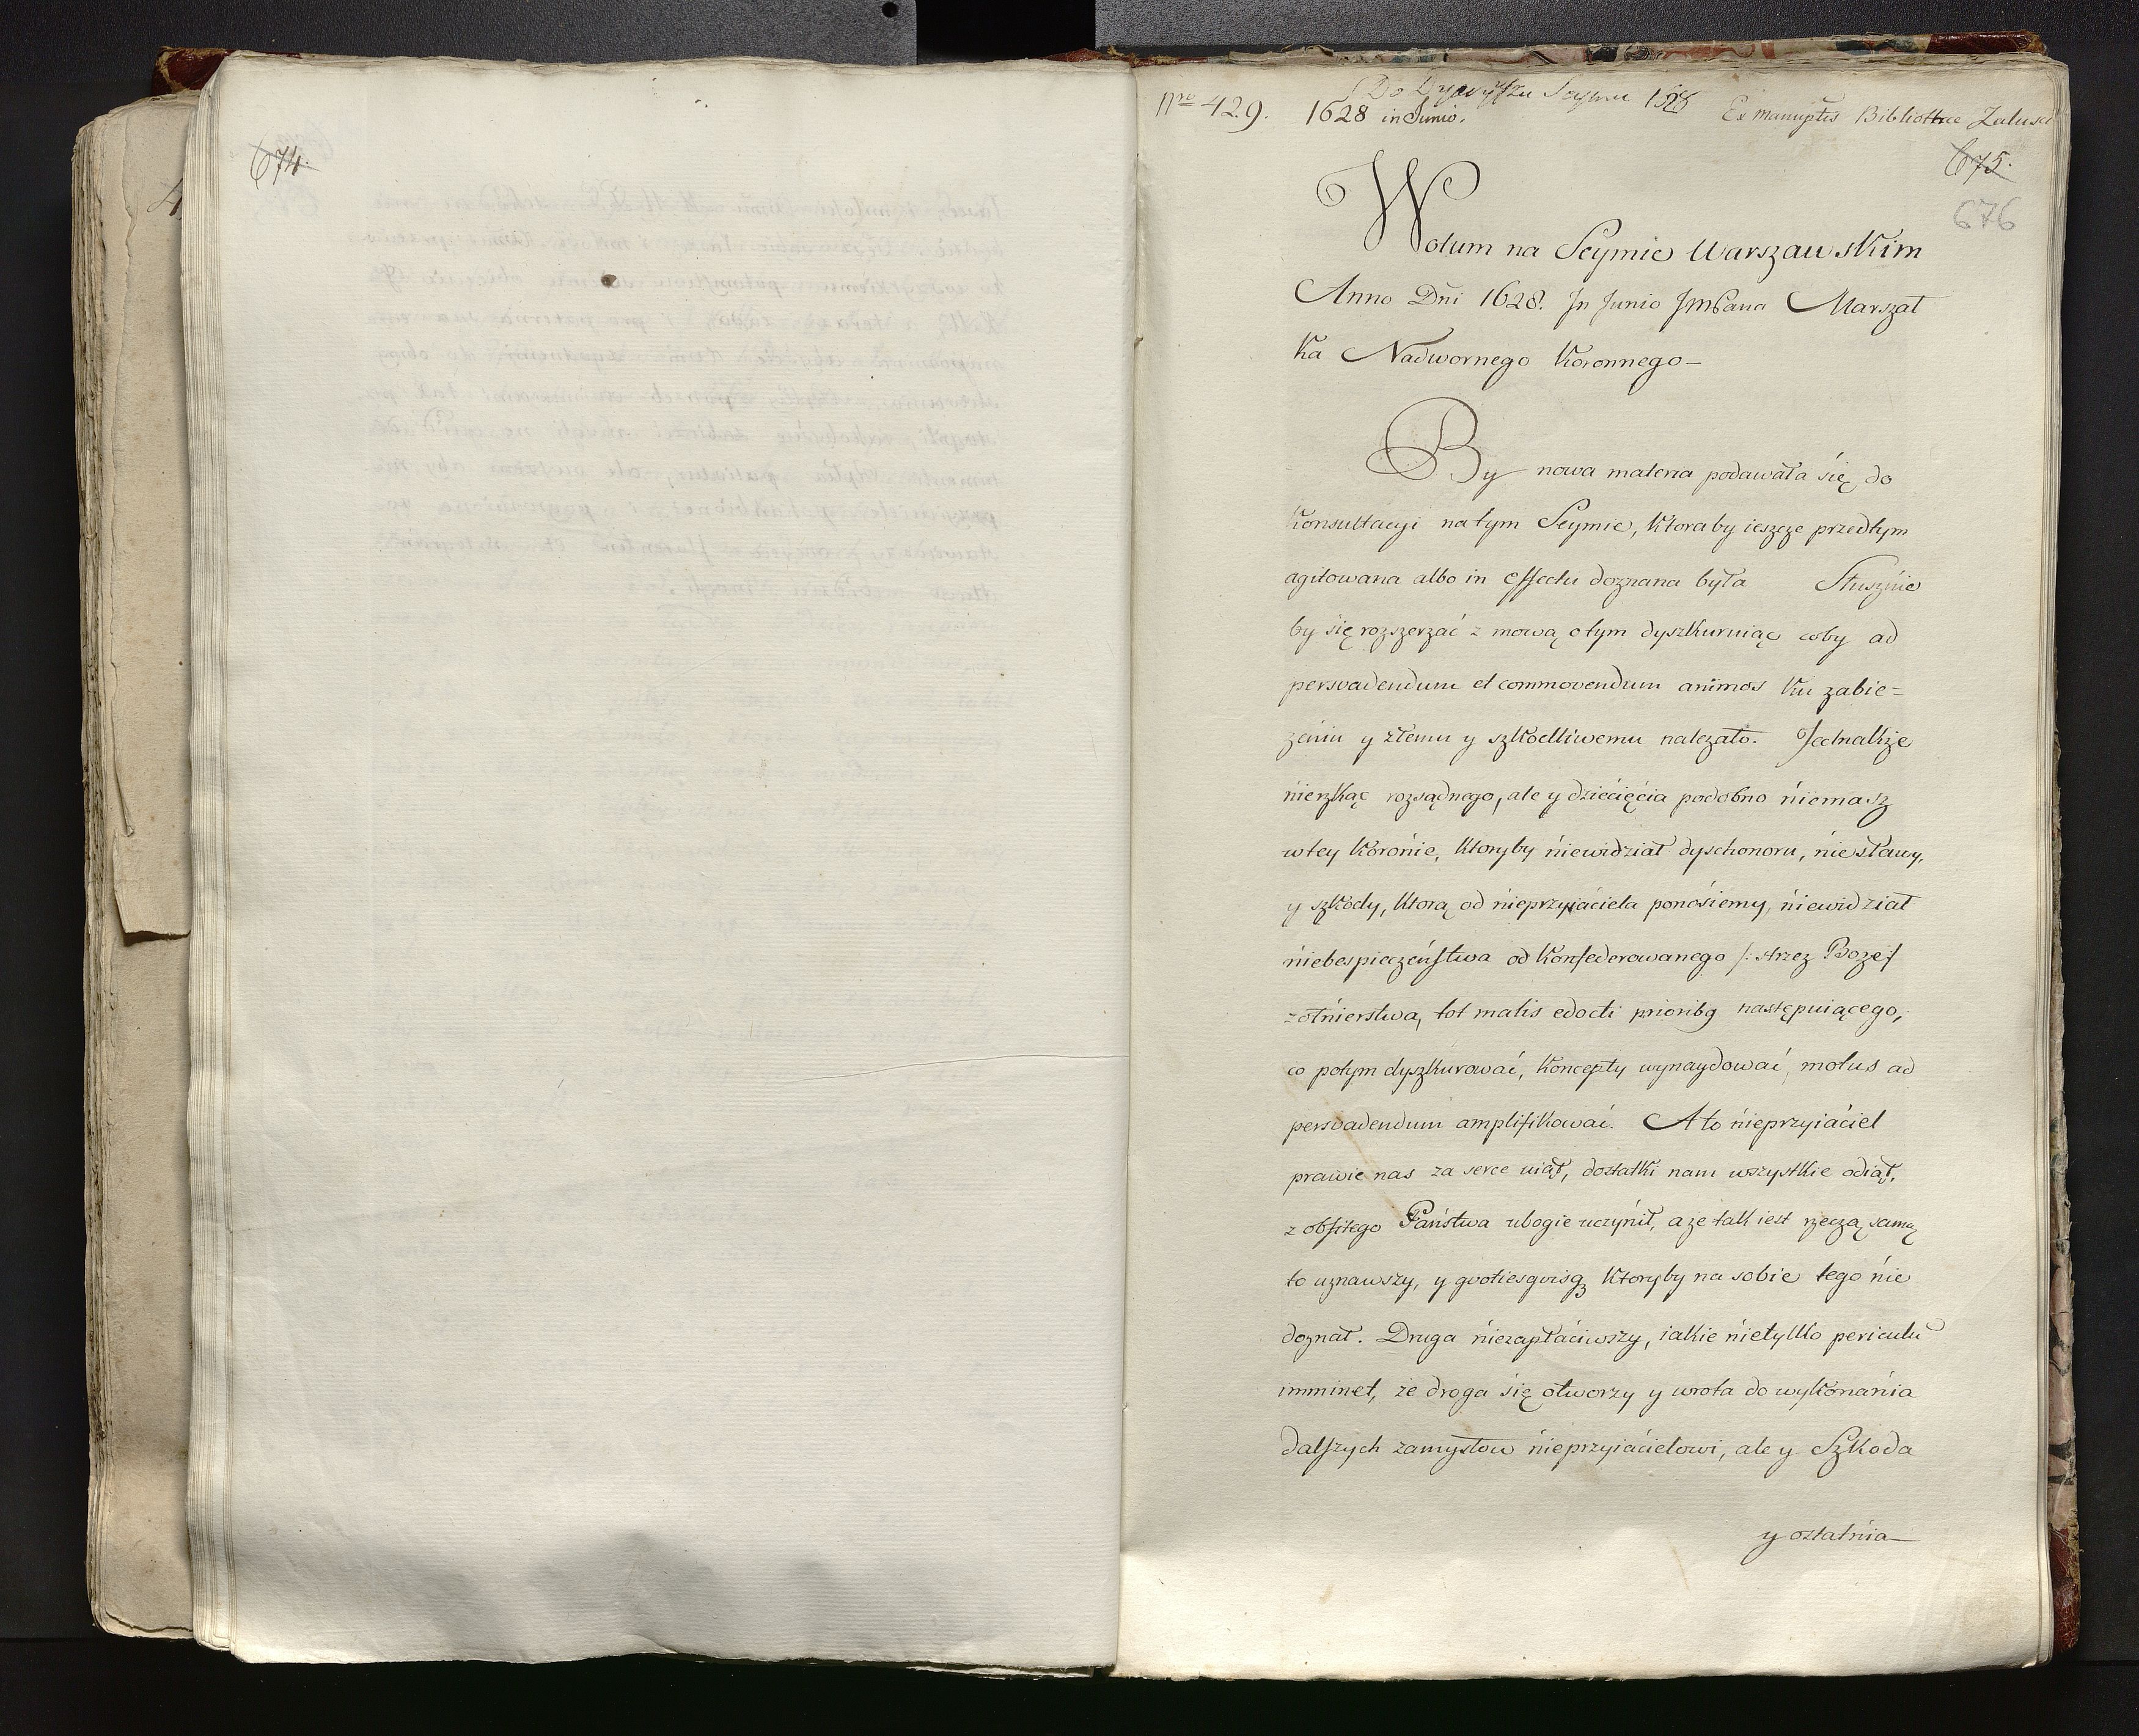 674.
Nro 429.
Do Dyaryszu Seymu 1628
1628 in Junio.
Ex Manuptis Bibliothce Zalusci
675.
676
Wotum na Seymie Warszawskim
Anno Dni 1628. Jn Junio JmPana Marszał
ka Nadwornego Koronnego—
By nowa materia podawała się do
Konsultacyi na tym Seymie, ktoraby ieszcze przedtym
agitowana albo in effectu doznana była Słusznie
by się rozszerzać z mową o tym dyszkuruiąc coby ad
persvadendum et commovendum animos ku zabie=
żeniu y złemu y szkodliwemu należało. Jednakże
nierzkąc rozsądnego, ale y dziecięcia podobno niemasz
wtey Koronie, ktoryby niewidział dyschonoru, niesławy,
y szkody, ktorą od nieprzyiaciela ponosiemy, niewidział
niebespieczeństwa od Konfederowanego /: strzez Boze :/
żołnierstwa, tot malis edocti prioribq następuiącego,
co potym dyszkurować, koncepty wynaydować, motus ad
persvadendum amplifikować. A to nieprzyiaciel
prawie nas za serce uiął, dostatki nam wszystkie odiął,
z obfitego Państwa ubogie uczynił, a że tak iest rzeczą samą
to uznawszy, y qvotiesqvisq ktoryby na sobie tego nie
doznał. Druga niezapłaciwszy, iakie nietylko periculu
imminet, że droga się otworzy y wrota do wykonania
dalszych zamysłow nieprzyiacielowi, ale y Szkoda
y ostatnia—